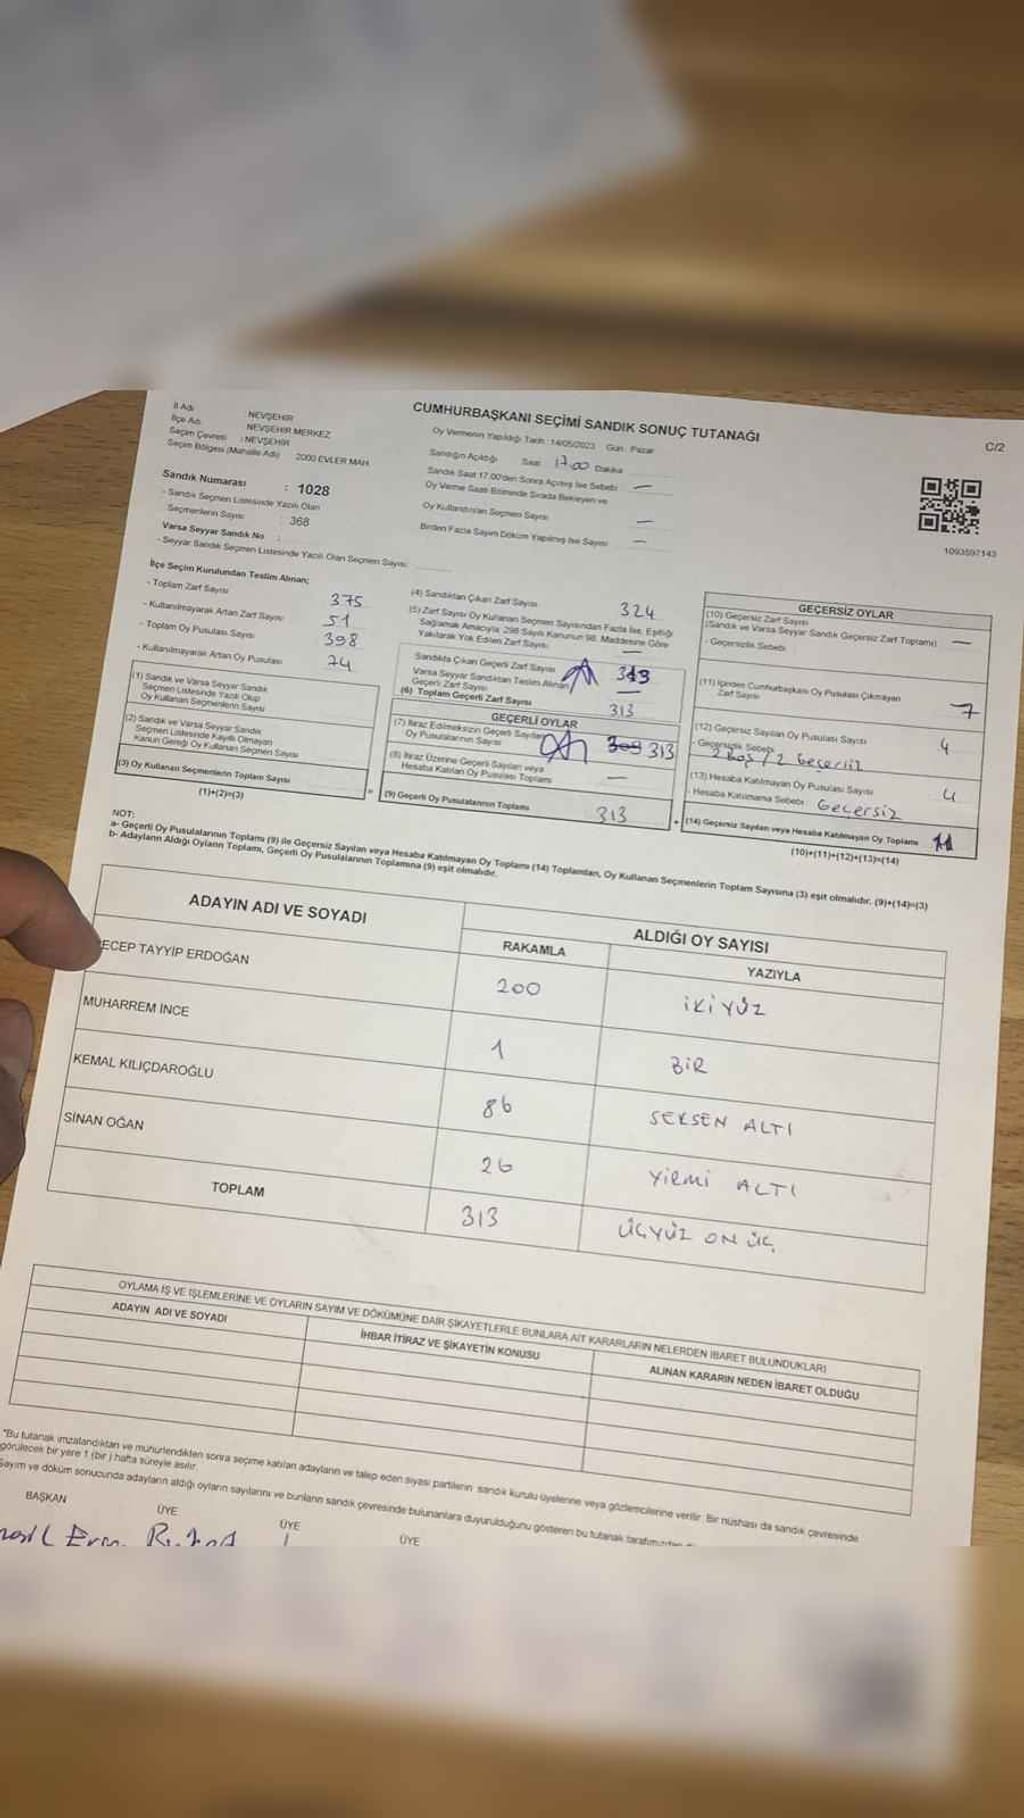 CUMHURBAŞKANI SEÇİMİ SANDIK SONUÇ TUTANAĞI
C/2
İl Adı NEVŞEHİR
İlçe Adı NEVŞEHİR MERKEZ
Seçim Çevresi : NEVŞEHİR
Seçim Bölgesi (Mahalle Adı) 2000 EVLER MAH.
Sandık Numarası : 1028
- Sandık Seçmen Listesinde Yazılı Olan
Seçmenlerin Sayısı 368
Varsa Seyyar Sandık No :
- Seyyar Sandık Seçmen Listesinde Yazılı Olan Seçmen Sayısı:
Oy Vermenin Yapıldığı Tarih : 14/05/2023 Gün : Pazar
Sandığın Açıldığı Saat 17.00 Dakika
Sandık Saat 17.00'den Sonra Açılmış İse Sebebi —
Oy Verme Saati Bitiminde Sırada Bekleyen ve
Oy Kullandırılan Seçmen Sayısı —
Birden Fazla Sayım Döküm Yapılmış İse Sayısı —
1093597143
İlçe Seçim Kurulundan Teslim Alınan;
- Toplam Zarf Sayısı 375
- Kullanılmayarak Artan Zarf Sayısı 51
- Toplam Oy Pusulası Sayısı 398
- Kullanılmayarak Artan Oy Pusulası 74
(1) Sandık ve Varsa Seyyar Sandık
Seçmen Listesinde Yazılı Olup
Oy Kullanan Seçmenlerin Sayısı
(2) Sandık ve Varsa Seyyar Sandık
Seçmen Listesinde Kayıtlı Olmayan
Kanun Gereği Oy Kullanan Seçmen Sayısı
(3) Oy Kullanan Seçmenlerin Toplam Sayısı
(1)+(2)=(3)
(4) Sandıktan Çıkan Zarf Sayısı 324
(5) Zarf Sayısı Oy Kullanan Seçmen Sayısından Fazla İse, Eşitliği
Sağlamak Amacıyla, 298 Sayılı Kanunun 98. Maddesine Göre
Yakılarak Yok Edilen Zarf Sayısı —
Sandıkta Çıkan Geçerli Zarf Sayısı 313
Varsa Seyyar Sandıktan Teslim Alınan
Geçerli Zarf Sayısı —
(6) Toplam Geçerli Zarf Sayısı 313
GEÇERLİ OYLAR
(7) İtiraz Edilmeksizin Geçerli Sayılan
Oy Pusulalarının Sayısı 309 313
(8) İtiraz Üzerine Geçerli Sayılan veya
Hesaba Katılan Oy Pusulası Toplamı —
(9) Geçerli Oy Pusulalarının Toplamı 313
GEÇERSİZ OYLAR
(10) Geçersiz Zarf Sayısı
(Sandık ve Varsa Seyyar Sandık Geçersiz Zarf Toplamı) —
- Geçersizlik Sebebi
(11) İçinden Cumhurbaşkanı Oy Pusulası Çıkmayan
Zarf Sayısı 7
(12) Geçersiz Sayılan Oy Pusulası Sayısı 4
- Geçersizlik Sebebi 2 Boş / 2 Geçersiz
(13) Hesaba Katılmayan Oy Pusulası Sayısı 4
- Hesaba Katılmama Sebebi Geçersiz
(14) Geçersiz Sayılan veya Hesaba Katılmayan Oy Toplamı 11
(10)+(11)+(12)+(13)=(14)
NOT:
a- Geçerli Oy Pusulalarının Toplamı (9) ile Geçersiz Sayılan veya Hesaba Katılmayan Oy Toplamı (14) Toplamları, Oy Kullanan Seçmenlerin Toplam Sayısına (3) eşit olmalıdır. (9)+(14)=(3)
b- Adayların Aldığı Oyların Toplamı, Geçerli Oy Pusulalarının Toplamına (9) eşit olmalıdır.
ADAYIN ADI VE SOYADI
ALDIĞI OY SAYISI
RAKAMLA YAZIYLA
ECEP TAYYİP ERDOĞAN 200 İKİ YÜZ
MUHARREM İNCE 1 BİR
KEMAL KILIÇDAROĞLU 86 SEKSEN ALTI
SİNAN OĞAN 26 YİRMİ ALTI
TOPLAM 313 ÜÇYÜZ ON ÜÇ
OYLAMA İŞ VE İŞLEMLERİNE VE OYLARIN SAYIM VE DÖKÜMÜNE DAİR ŞİKAYETLERLE BUNLARA AİT KARARLARIN NELERDEN İBARET BULUNDUKLARI
ADAYIN ADI VE SOYADI İHBAR İTİRAZ VE ŞİKAYETİN KONUSU ALINAN KARARIN NEDEN İBARET OLDUĞU
*Bu tutanak imzalandıktan ve mühürlendikten sonra seçime katılan adayların ve talep eden siyasi partilerin sandık kurulu üyelerine veya gözlemcilerine verilir. Bir nüshası da sandık çevresinde
görülecek bir yere 1 (bir) hafta süreyle asılır.
Sayım ve döküm sonucunda adayların aldığı oyların sayılarını ve bunların sandık çevresinde bulunanlara duyurulduğunu gösteren bu tutanak tarafımızdan
BAŞKAN ÜYE ÜYE ÜYE